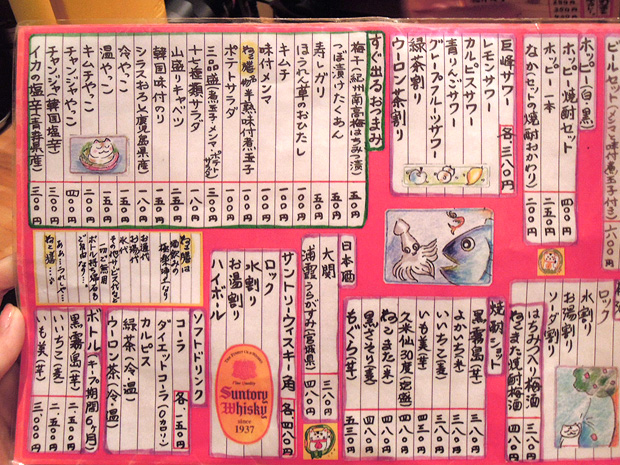 ビールセット(メンマと味付煮玉子付き) 六八〇円
ホッピー(白・黒)
ホッピー焼酎セット 四〇〇円
ホッピー一本 二五〇円
なか(セットの焼酎おかわり) 二〇〇円
巨峰サワー 各三八〇円
レモンサワー
カルピスサワー
青りんごサワー
グレープフルーツサワー
緑茶割り
ウーロン茶割り
すぐ出るおつまみ
梅干(紀州南高梅はちみつ漬) 五〇円
つぼ漬けたくあん 五〇円
寿しガリ 五〇円
ほうれん草のおひたし 一五〇円
キムチ 一〇〇円
味付メンマ 一〇〇円
ねこ膳名物半熟味付煮玉子 一〇〇円
ポテトサラダ 一〇〇円
三品盛り(煮玉子・メンマ・ポテトサラダ) 二五〇円
十七種類サラダ 一五〇円
山盛りキャベツ 一五〇円
韓国味付のり 一八〇円
シラスおろし(鹿児島県産) 一五〇円
冷やっこ 一五〇円
温やっこ 一五〇円
キムチやっこ 二〇〇円
チャンジャやっこ 四〇〇円
チャンジャ(韓国塩辛) 三〇〇円
イカの塩辛(青森県産) 三〇〇円
ロック
水割り
お湯割り
ソーダ割り
はちみつ入り梅酒 三八〇円
ねこまた焼酎梅酒 四八〇円
焼酎ショット
黒霧島(芋) 三三〇円
よかいち(麦) 三三〇円
いいちこ(麦) 三三〇円
いも美(芋) 四三〇円
久米仙30度(泡盛) 三八〇円
ねこまた(麦) 四八〇円
黒さそり(麦) 四八〇円
もぐら(芋) 四八〇円
日本酒
大関 三八〇円
浦霞(うらかすみ)(宮城県) 四八〇円
サントリーウイスキー角 各四八〇円
ロック
水割り
お湯割り
ハイボール
The Finest Old Whisky
Fine Quality
Suntory
Whisky
since
1937
ねこ膳は
酒飲みの
極楽浄土なり
お通し代
お席代
氷代
その他サービス代など
一切ご無用
ボトル持ち帰るも
ご自由なり…
あぁ…うれしや…
ねこ膳…♪
ソフトドリンク
コーラ 各一五〇円
ダイエットコーラ(0カロリー)
カルピス
緑茶(冷・温)
ウーロン茶(冷・温)
ボトル(キープ期間6ヶ月)
黒霧島(芋) 二、五〇〇円
いいちこ(麦) 二、五〇〇円
いも美(芋) 三、〇〇〇円